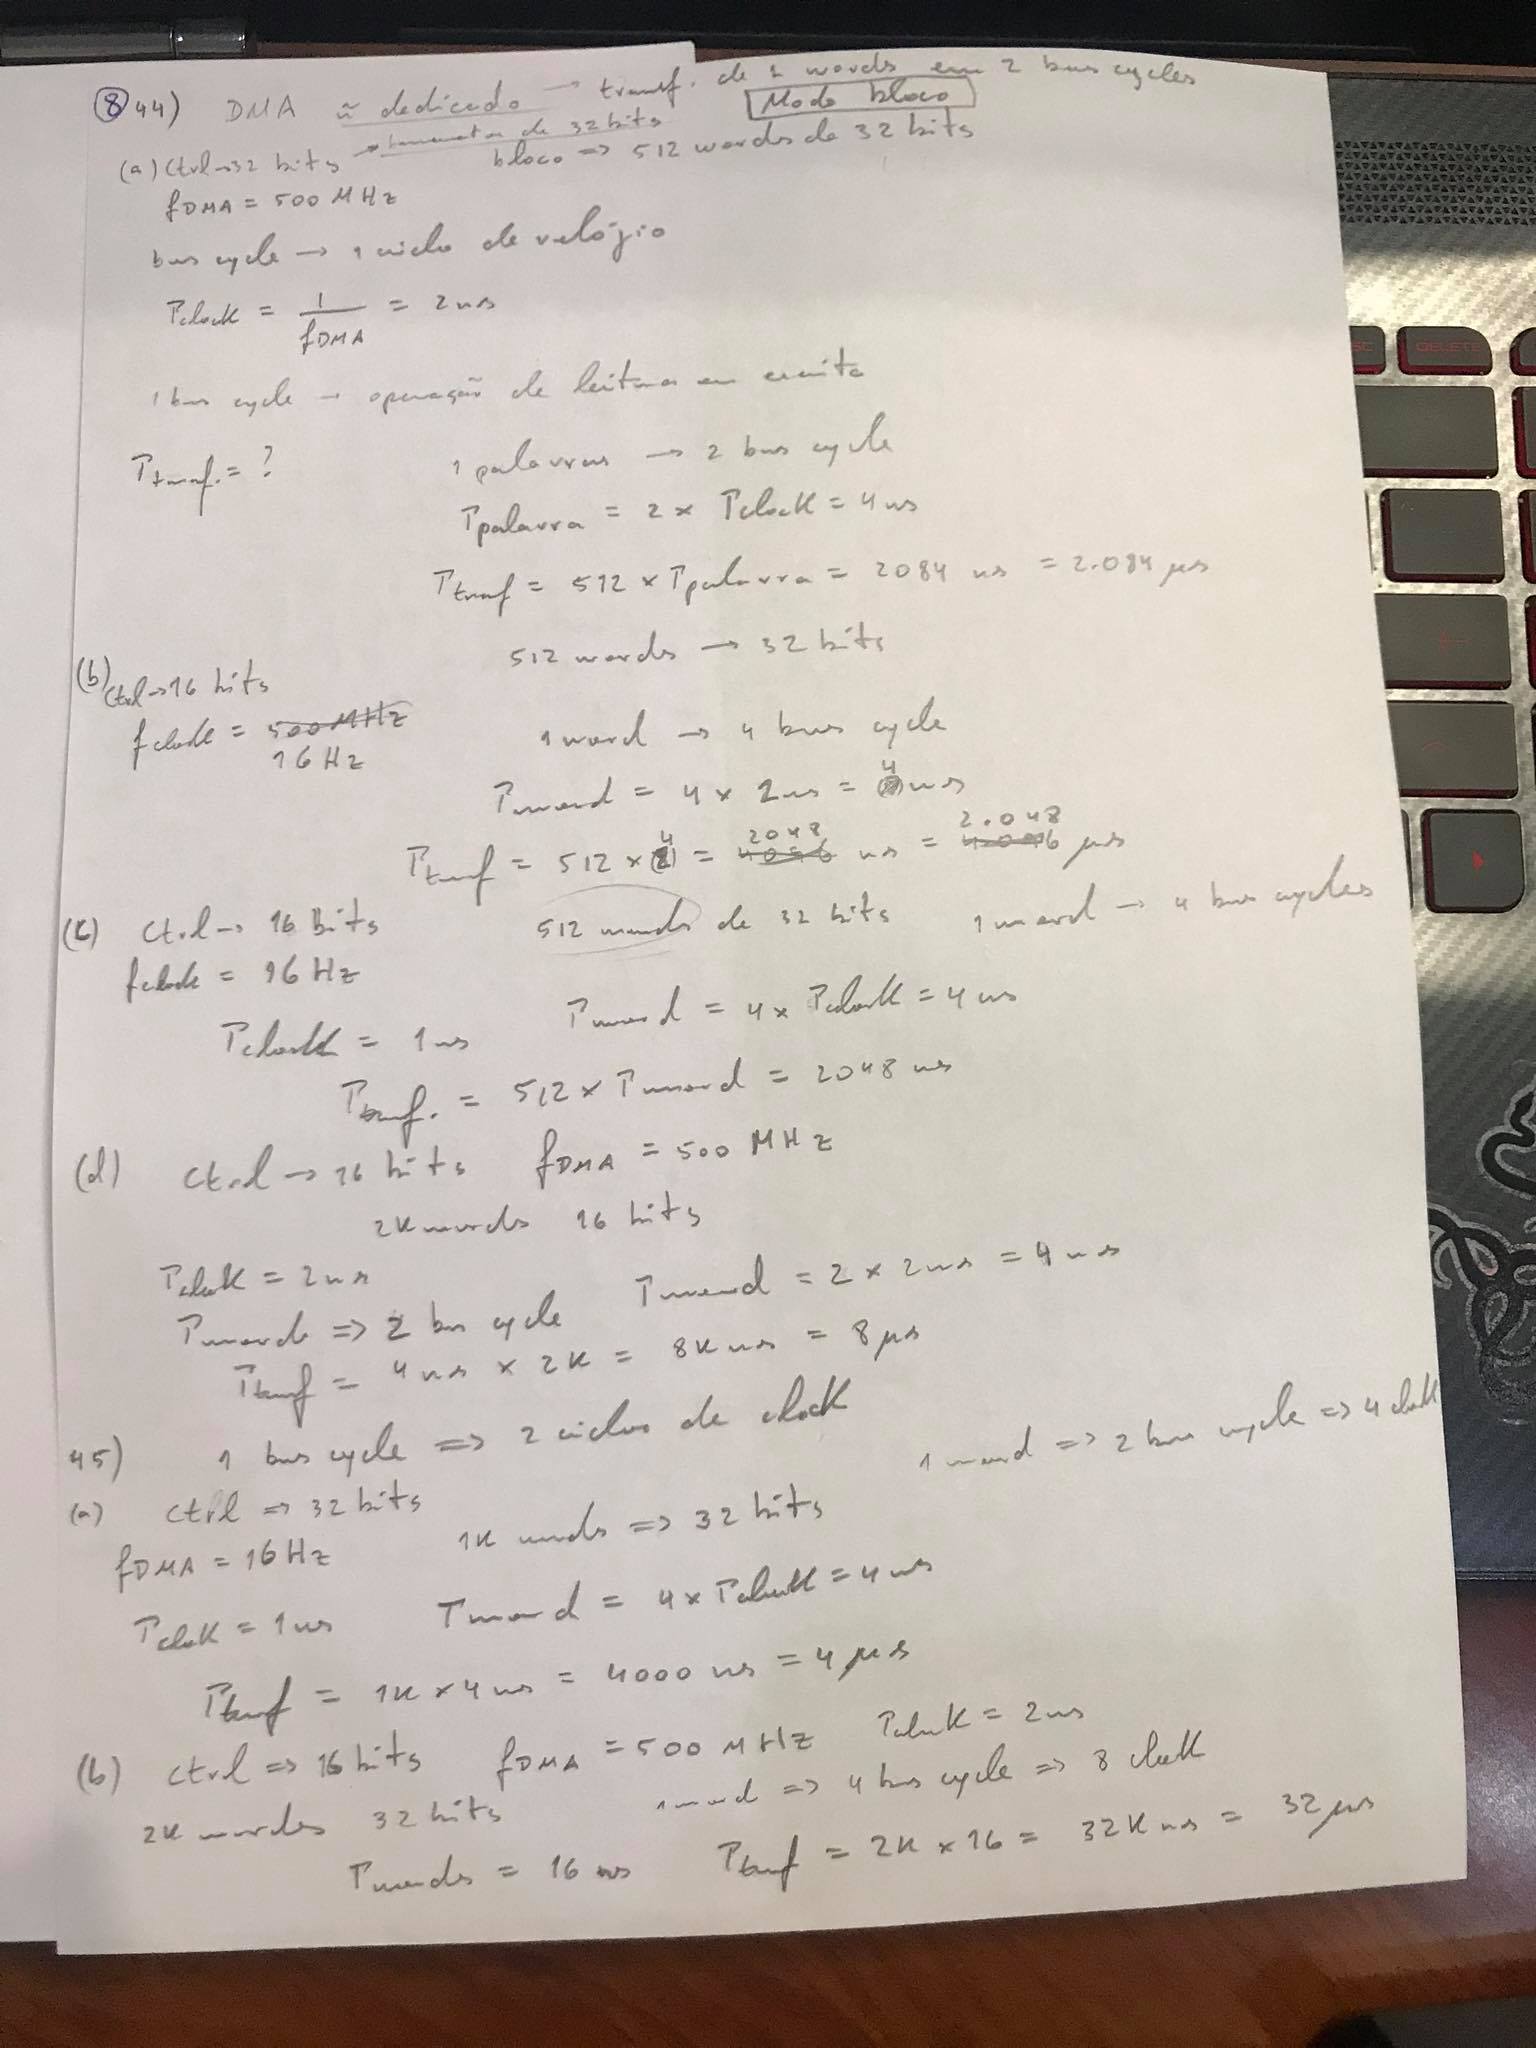 ⑧ 44) DMA ñ dedicado → transf. de 1 words em 2 bus cycles
Modo bloco
(a) Ctrl→32 bits → de 32 bits
bloco => 512 words de 32 bits
fDMA = 500 MHz
bus cycle → 1 ciclo de relógio
Tclock = 1/fDMA = 2ns
1 bus cycle → operação de leitura ou escrita
Ttransf. = ?
1 palavras → 2 bus cycle
Tpalavra = 2 × Tclock = 4ns
Ttransf = 512 × Tpalavra = 2084 ns = 2.084 μs
512 words → 32 bits
(b) Ctrl→16 bits
fclock = 500MHz
1GHz
1 word → 4 bus cycle
Tword = 4 × 1ns = 4ns
Ttransf = 512 × 4 = 4096 2048 ns = 4.096 2.048 μs
(c) Ctrl → 16 Bits 512 words de 32 bits 1 word → 4 bus cycles
fclock = 1GHz
Tclock = 1ns Tword = 4 × Tclock = 4ns
Ttransf. = 512 × Tword = 2048 ns
(d) Ctrl → 16 bits fDMA = 500 MHz
2K words 16 bits
Tclock = 2ns
Tword => 2 bus cycle Tword = 2 × 2ns = 4ns
Ttransf = 4ns × 2K = 8K ns = 8μs
45) 1 bus cycle => 2 ciclos de clock
1 word => 2 bus cycle => 4 clock
(a) Ctrl => 32 bits
1K words => 32 bits
fDMA = 1GHz
Tclock = 1ns Tword = 4 × Tclock = 4ns
Ttransf = 1K × 4ns = 4000 ns = 4μs
(b) Ctrl => 16 bits fDMA = 500 MHz Tclock = 2ns
2K words 32 bits 1 word => 4 bus cycle => 8 clock
Twords = 16 ns Ttransf = 2K × 16 = 32K ns = 32μs
DELETE